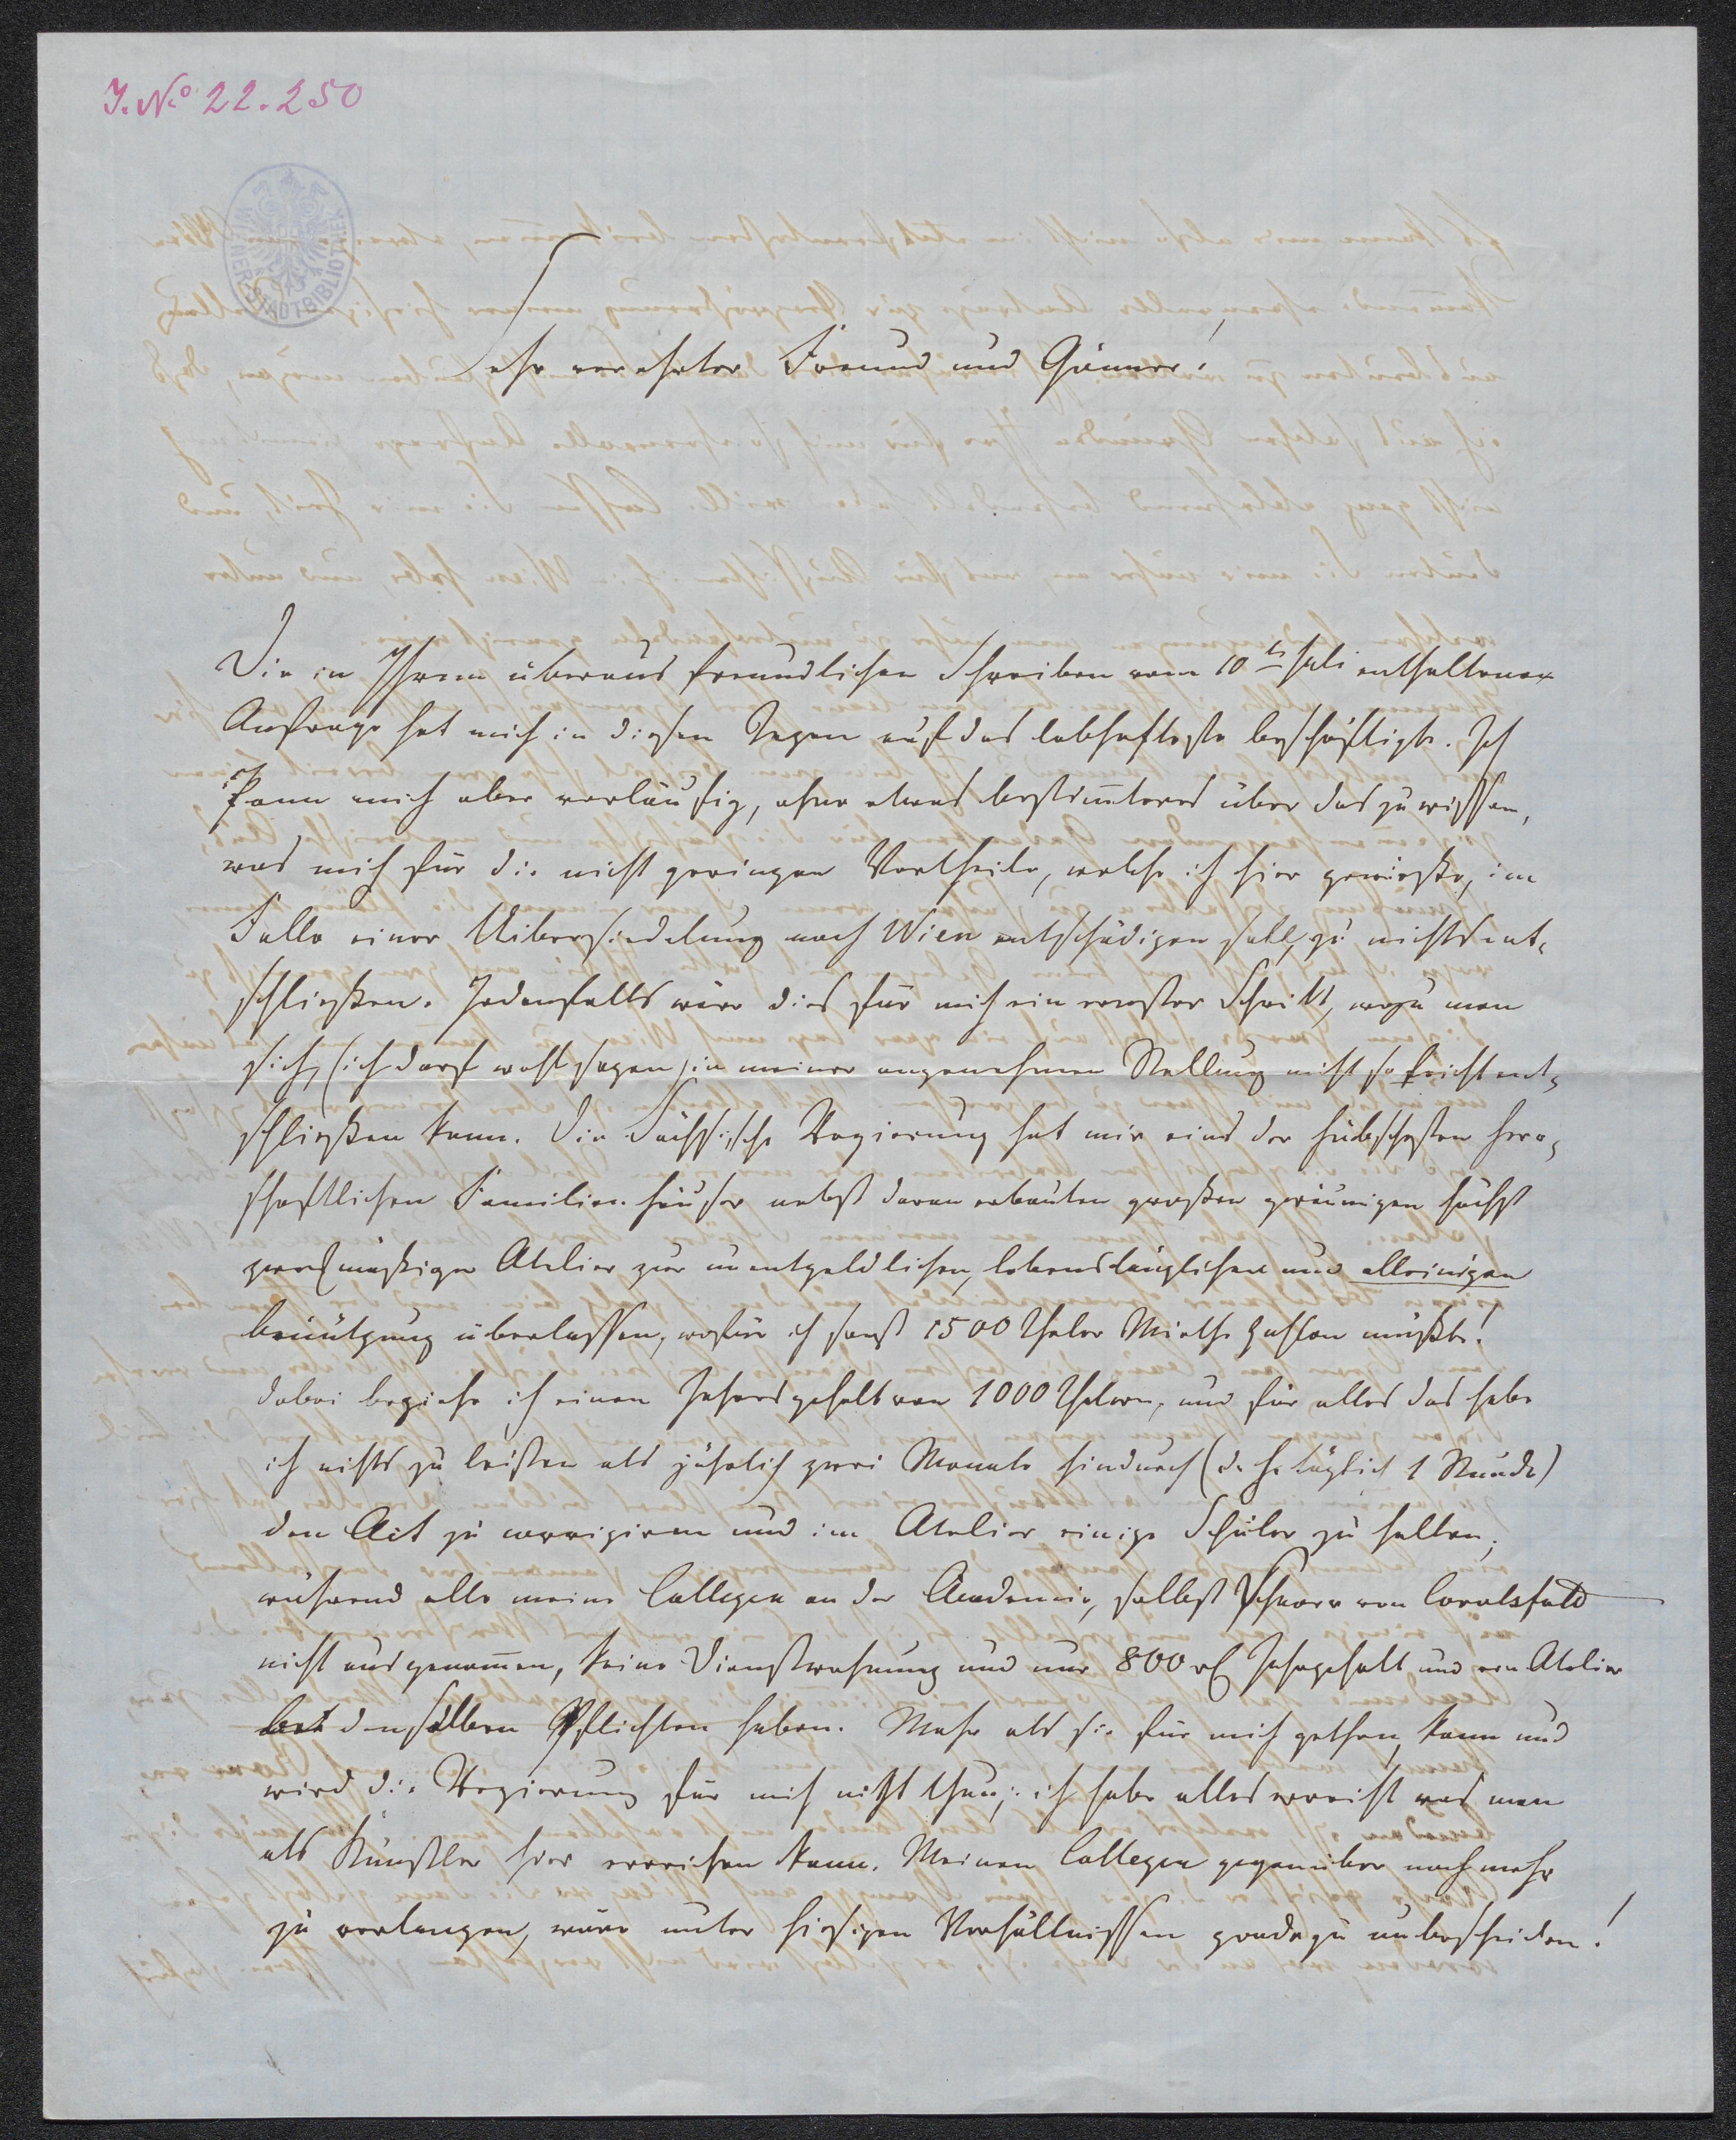 I. No 22.250
WIENER STADTBIBLIOTHEK
Sehr verehrter Freund und Gönner!
Die in Ihrem überaus freundlichen Schreiben vom 10ten Juli enthaltene
Anfrage hat mich in diesen Tagen auf das lebhafteste beschäftigt. Ich
kann mich aber vorläufig, ohne etwas bestimteres über das zu wissen,
was mich für die nicht geringen Vortheile, welche ich hier genieße, im
Falle einer Uibersiedelung nach Wien entschädigen soll, zu nichts ent-
schließen. Jedenfalls wäre dies für mich ein ernster Schritt, wozu man
sich, (ich darf wohl sagen) in meiner angenehmen Stellung nicht so leicht ent-
schließen kann. Die Sächsische Regierung hat mir eins der hübschesten herr-
schaftlichen Familienhäuser nebst daran erbauten großen geräumigen höchst
zweckmäßigen Atelier zur unentgeldlichen, lebenslänglichen und alleinigen
benützung überlassen, wofür ich sonst 1500 Thaler Miethe zahlen müßte!
dabei beziehe ich einen Jahresgehalt von 1000 Thalern, und für alles das habe
ich nichts zu leisten als jährlich zwei Monate hindurch (d. h. täglich 1 Stunde)
den Act zu corrigiren und im Atelier einige Schüler zu halten,
während alle meine Collegen an der Academie, selbst Schnorr von Carolsfeld
nicht ausgenomen, keine Dienstwohnung und nur 800 rl Jahrgehalt und ein Atelier
bei denselben Pflichten haben. Mehr als sie für mich gethan, kann und
wird die Regierung für mich nicht thun; ich habe alles erreicht was man
als Künstler hier erreichen kann. Meinen Collegen gegenüber noch mehr
zu verlangen, wäre unter hiesigen Verhältnissen geradezu unbescheiden!